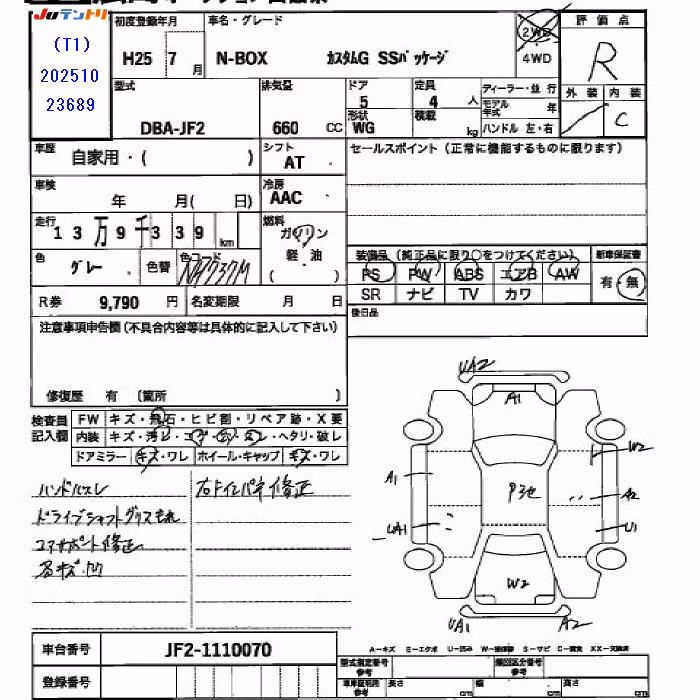 Juテントリ
(T1)
202510
23689
初度登録年月
H25 7 月
車名・グレード
N-BOX カスタムG SSパッケージ
2WD
4WD
評価点
R
外装 内装
C
型式
DBA-JF2
排気量
660 CC
ドア
5
形状
WG
定員
4 人
積載
kg
ディーラー・並行
モデル年式 年
ハンドル 左・右
車歴
自家用・( )
シフト
AT
セールスポイント(正常に機能するものに限ります)
車検
年 月( 日)
冷房
AAC
走行
13万9千339 km
燃料
ガソリン
軽・油
( )
色
グレー
色替
色コード
NH737M
装備品(純正品に限り○をつけてください)
PS PW ABS エアB AW
SR ナビ TV カワ
新車保証書
有・無
R券 9,790 円
名変期限 月 日
後日品
注意事項申告欄(不具合内容等は具体的に記入して下さい)
修復歴 有 〔箇所 〕
検査員記入欄
FW キズ・飛石・ヒビ割・リペア跡・X要
内装 キズ・汚レ・コゲ・穴・スレ・ヘタリ・破レ
ドアミラー キズ・ワレ ホイール・キャップ キズ・ワレ
ハンドルスレ
ドライブシャフトグリスもれ
コアサポート修正
右インパネ修正
UA2
A1
W2
A1
Pヨセ
A2
UA1
U1
W2
UA1
A2
車台番号
JF2-1110070
登録番号
A-キズ E-エクボ U-凹み W-補修跡 S-サビ C-腐食 XX-交換済
型式指定番号
参考
類別区分番号
参考
車庫証明用
参考
長さ cm 幅 cm 高さ cm